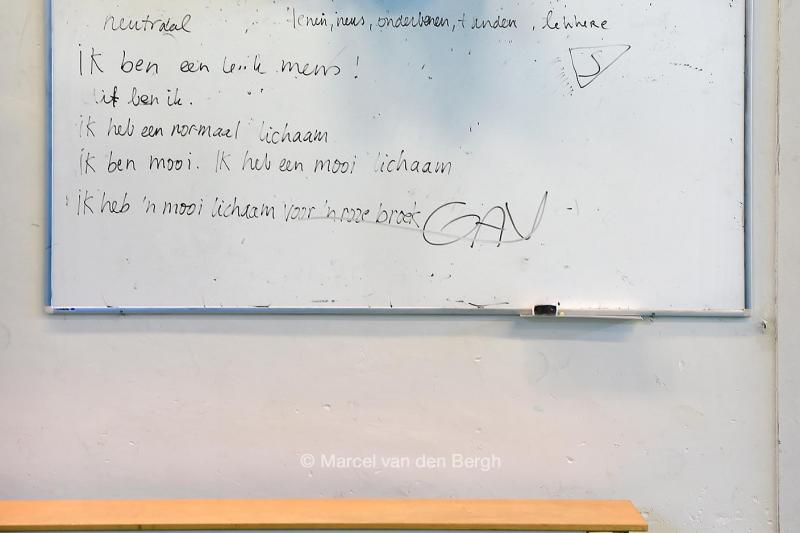 neutraal tenen, neus, onderbenen, tanden, lekkere
ik ben een leuk mens!
dit ben ik. S
ik heb een normaal lichaam
ik ben mooi. Ik heb een mooi lichaam
ik heb 'n mooi lichaam voor 'n roze broek GAY
© Marcel van den Bergh